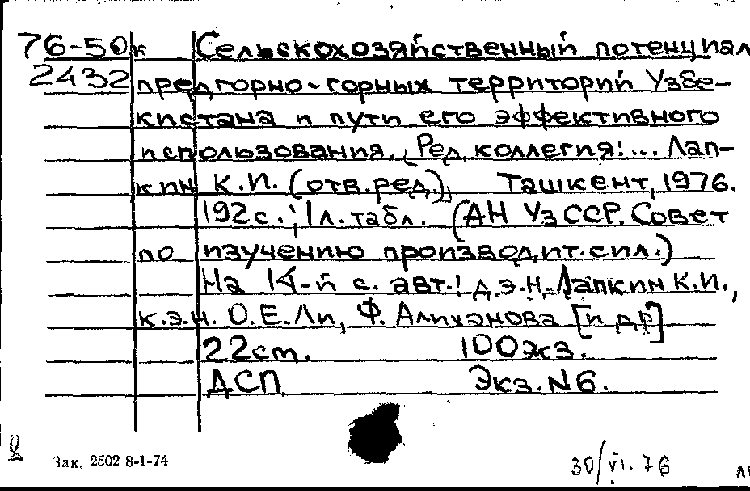 76-50к Сельскохозяйственный потенциал
2432 предгорно-горных территорий Узбе-
кистана и пути его эффективного
использования. (Ред. коллегия: ... Лап-
кин К.И. (отв.ред.)) Ташкент, 1976.
192с.; 1л.табл. (АН УзССР. Совет
по изучению производит.сил.)
На 14-й с. авт.: д.э.н. Лапкин К.И.,
к.э.н. О.Е.Ли, Ф. Алиханова [и др]
22см. 100экз.
ДСП Экз.N6.
Зак. 2502 8-1-74
30/VI.76